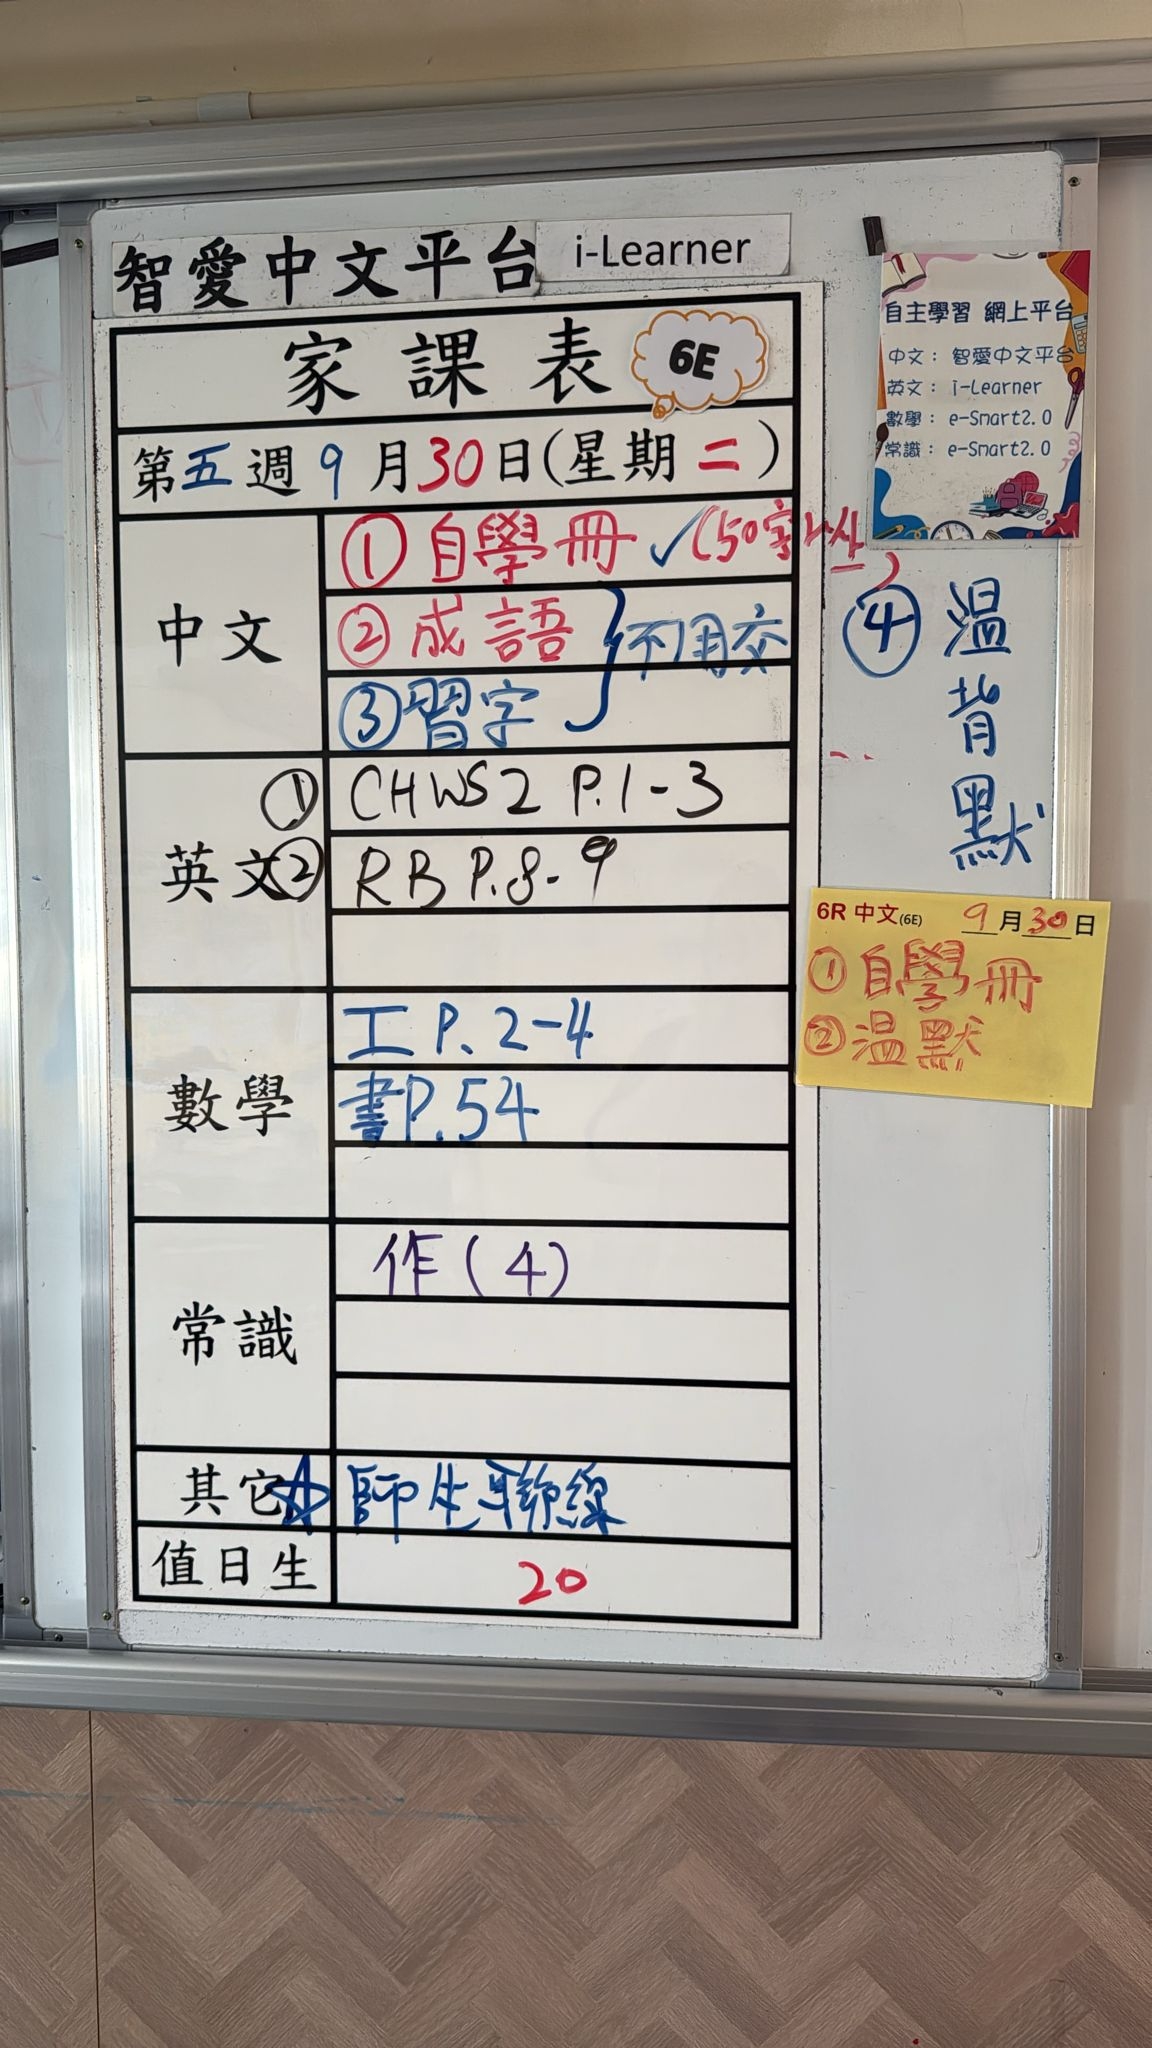 智愛中文平台 i-Learner
家課表 6E
第五週9月30日(星期二)
中文
①自學冊✓(50字以上)
②成語 } 不用交
③習字
④溫背默
英文
①CHWS2 P.1-3
②RB P.8-9
數學
工P.2-4
書P.54
常識
作(4)
其它☆師生聯線
值日生 20
自主學習 網上平台
中文： 智愛中文平台
英文： i-Learner
數學： e-Smart2.0
常識： e-Smart2.0
6R 中文(6E) 9月30日
①自學冊
②溫默